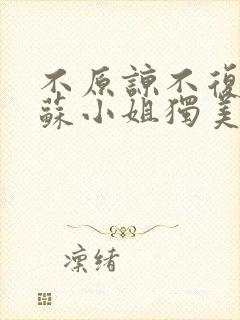 不原諒不復
蘇小姐獨美
凛緒